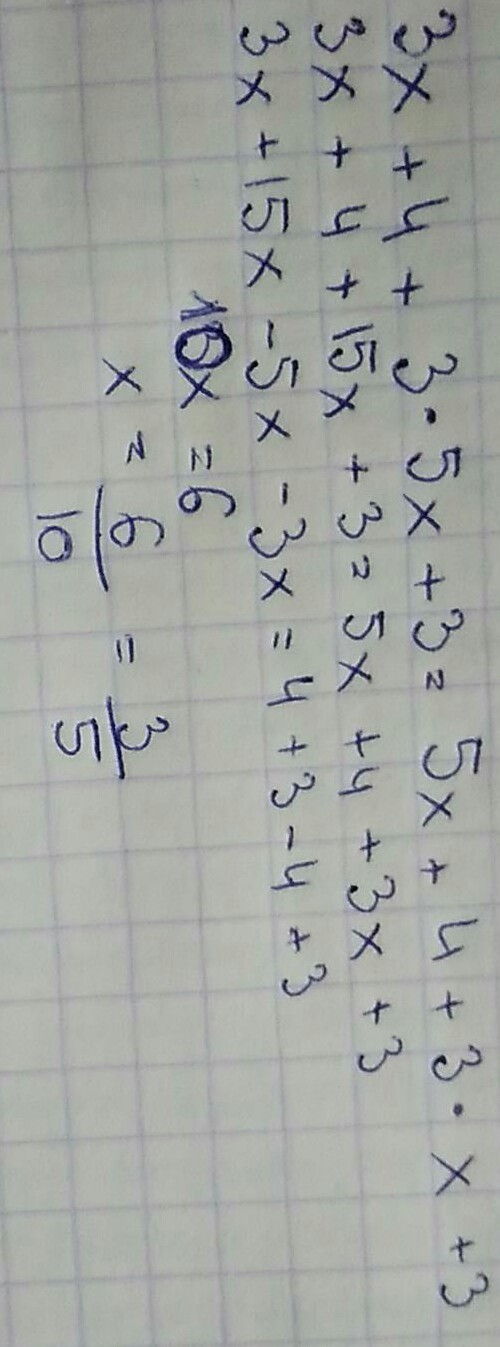 3x + 4 + 3 · 5x + 3 = 5x + 4 + 3 · x + 3
3x + 4 + 15x + 3 = 5x + 4 + 3x + 3
3x + 15x - 5x - 3x = 4 + 3 - 4 + 3
10x = 6
x = 6/10 = 3/5